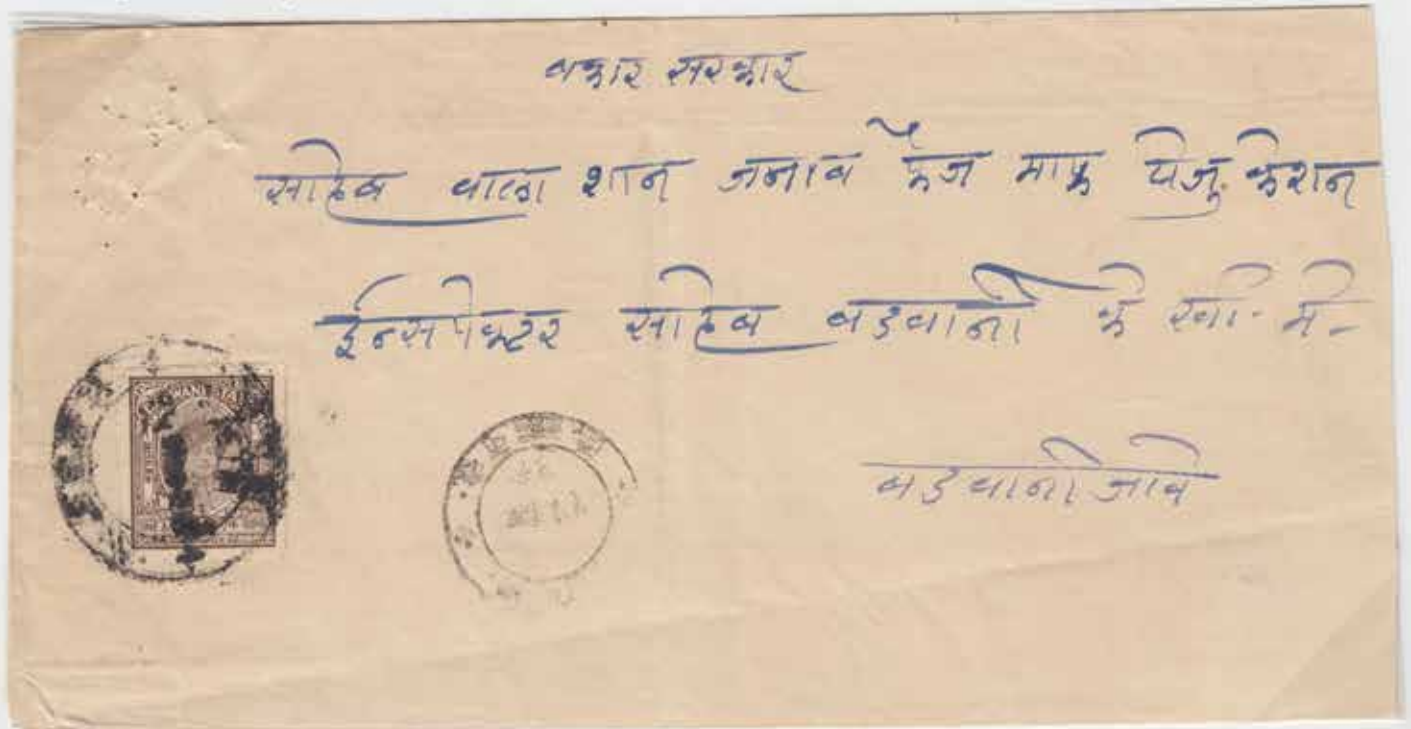 बकार सरकार
साहेब वाला शान जनाब फैज माफ येजुकेशन
ईन्सपेक्टर साहेब बडवानी के खी. मे-
बडवानी जावे
WANI